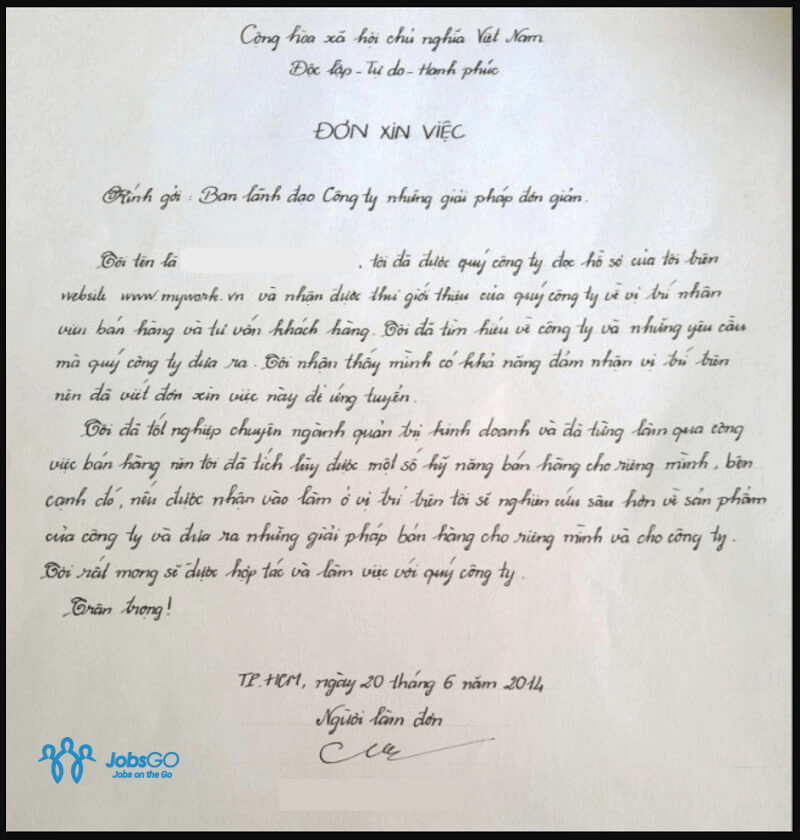 Cộng hòa xã hội chủ nghĩa Việt Nam
Độc lập - Tự do - Hạnh phúc
ĐƠN XIN VIỆC
Kính gởi : Ban lãnh đạo Công ty những giải pháp đơn giản.
Tôi tên là , tôi đã được quý công ty đọc hồ sơ của tôi trên
website www.mywork.vn và nhận được thư giới thiệu của quý công ty về vị trí nhân
viên bán hàng và tư vấn khách hàng. Tôi đã tìm hiểu về công ty và những yêu cầu
mà quý công ty đưa ra. Tôi nhận thấy mình có khả năng đảm nhận vị trí trên
nên đã viết đơn xin việc này để ứng tuyển.
Tôi đã tốt nghiệp chuyên ngành quản trị kinh doanh và đã từng làm qua công
việc bán hàng nên tôi đã tích lũy được một số kỹ năng bán hàng cho riêng mình, bên
cạnh đó, nếu được nhận vào làm ở vị trí trên tôi sẽ nghiên cứu sâu hơn về sản phẩm
của công ty và đưa ra những giải pháp bán hàng cho riêng mình và cho công ty.
Tôi rất mong sẽ được hợp tác và làm việc với quý công ty.
Trân trọng!
TP.HCM, ngày 20 tháng 6 năm 2014
Người làm đơn
JobsGO
Jobs on the Go